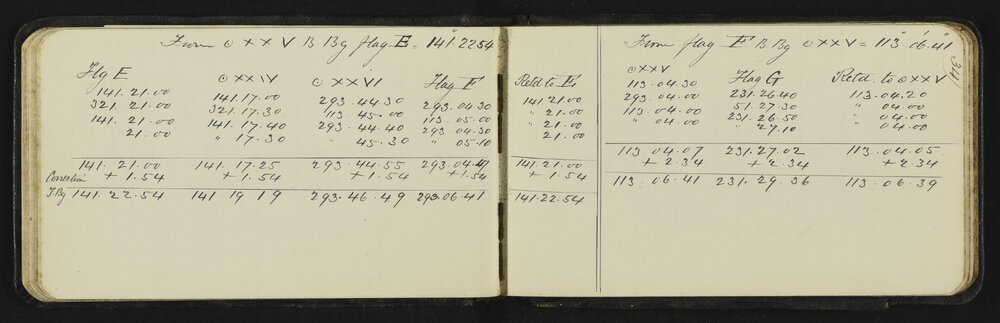 From ⊙ XXV B Bg flag E = 141°.22'54"
Flg E ⊙XXIV ⊙XXVI Flag F Retd to E
141.21.00 141.17.00 293.44.30 293.04.30 141.21.00
321.21.00 321.17.30 113.45.00 113.05.00 " 21.00
141.21.00 141.17.40 293.44.40 293.04.30 " 21.00
21.00 " 17.30 " 45.30 " 05.10 21.00
141.21.00 141.17.25 293.44.55 293.04.47 141.21.00
Correction + 1.54 + 1.54 + 1.54 + 1.54 + 1.54
T.Bg 141.22.54 141 19 19 293.46.49 293.06.41 141.22.54
34
From flag F B Bg ⊙XXV = 113°.06'.41"
⊙XXV Flag G Retd. to ⊙XXV
113.04.30 231.26.40 113.04.20
293.04.00 51.27.30 " 04.00
113.04.00 231.26.50 " 04.00
" 04.00 " 27.10 " 04.00
113.04.07 231.27.02 113.04.05
+ 2.34 + 2.34 + 2.34
113.06.41 231.29.36 113.06.39